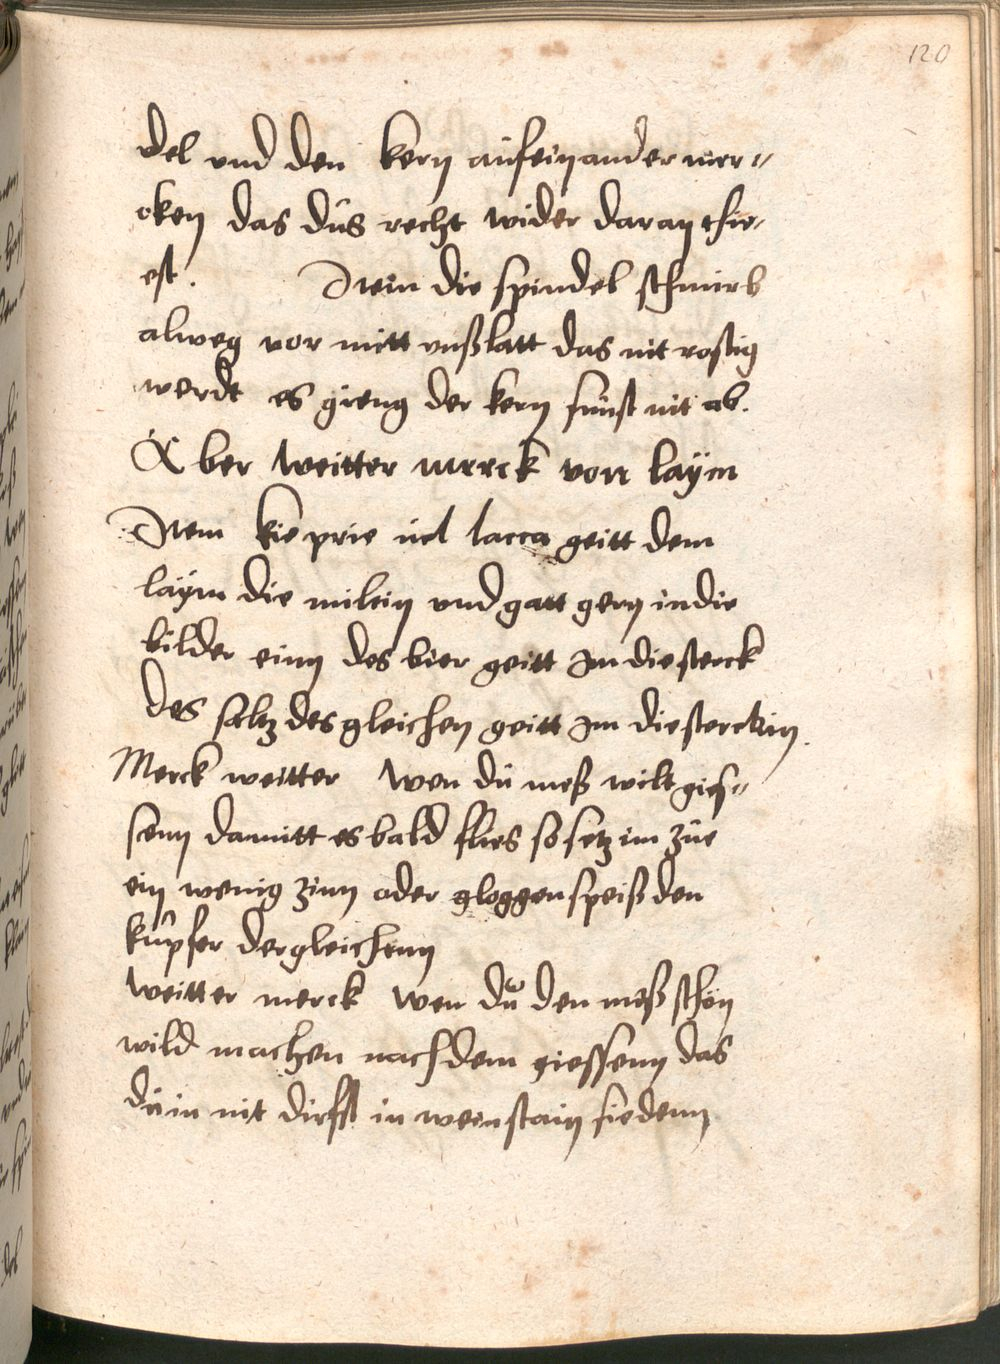 120
del vnd den kern aufeinander mer=
cken das dus recht wider daran thie=
est. Item die spindel schmirb
alweg vor mitt vnßlatt das nit rostig
werdt es gieng der kern sunst nit ab.
Aber weitter merck von laym
Item kie prie lacca geitt dem
laym die milein vnd gatt gern in die
bilder einn des bier geitt Im die sterck
des saltz desgleichen geitt Im die sterckin.
Merck weitter wen du meß wilt gies=
senn damitt es bald flies so setz im zue
ein wenig zinn oder gloggenspeiß den
kupfer dergleichenn
Weitter merck wen du den meß schön
wild machen nach dem giessenn das
du in nit dirfst in weinstain siedenn